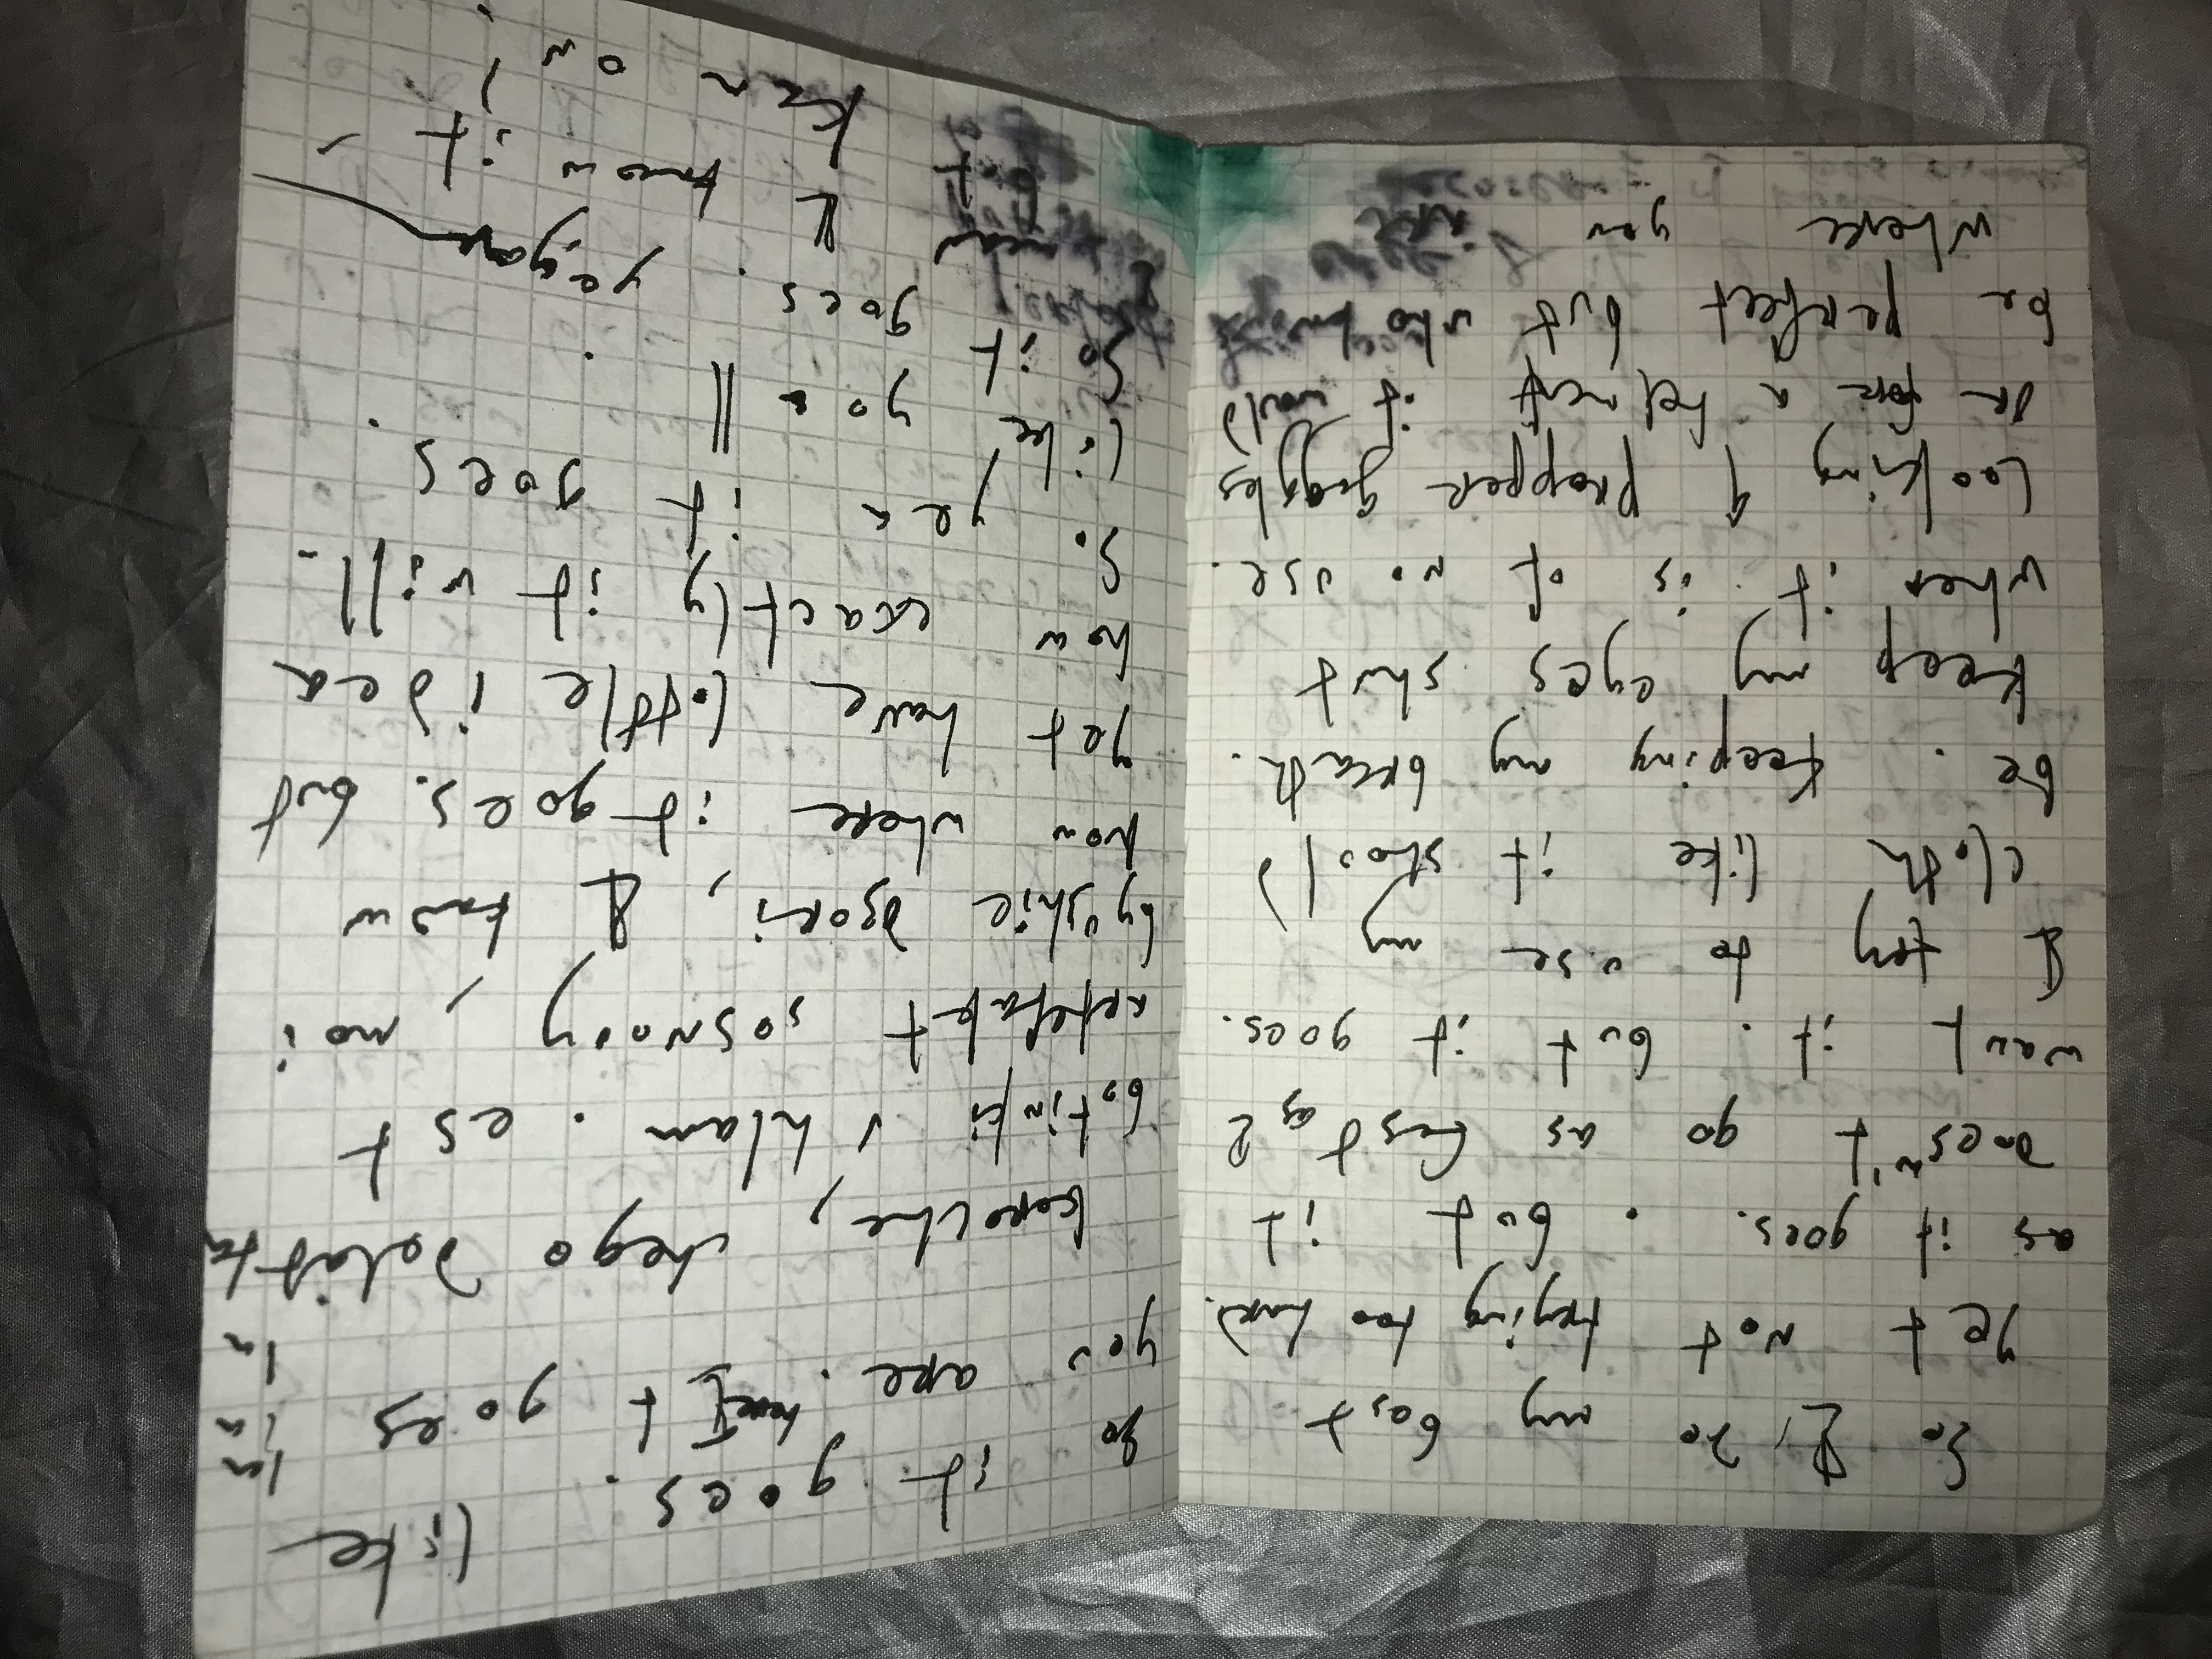 So I, do my best
yet not trying too hard.
as it goes. . but it
doesn't go as fast as I
want it. but it goes.
I try to use my
cloth like it should
be. Keeping my breath.
keep my eyes shut
when it is of no use.
Looking 4 propper goggles
or for a helment it would
be perfect but who knows
where you are
so it goes. like
you are. here It goes la
la
la
koroche, chego delat ta
botinki v hlam. est
artefakt sosnovy, moi
byvshie dzori, I know
now where it goes. but
yet have lottle idea
how exactly it will.
So yea it goes.
like you ll.
So it goes. ye
I mean I know it,
but Kam on!